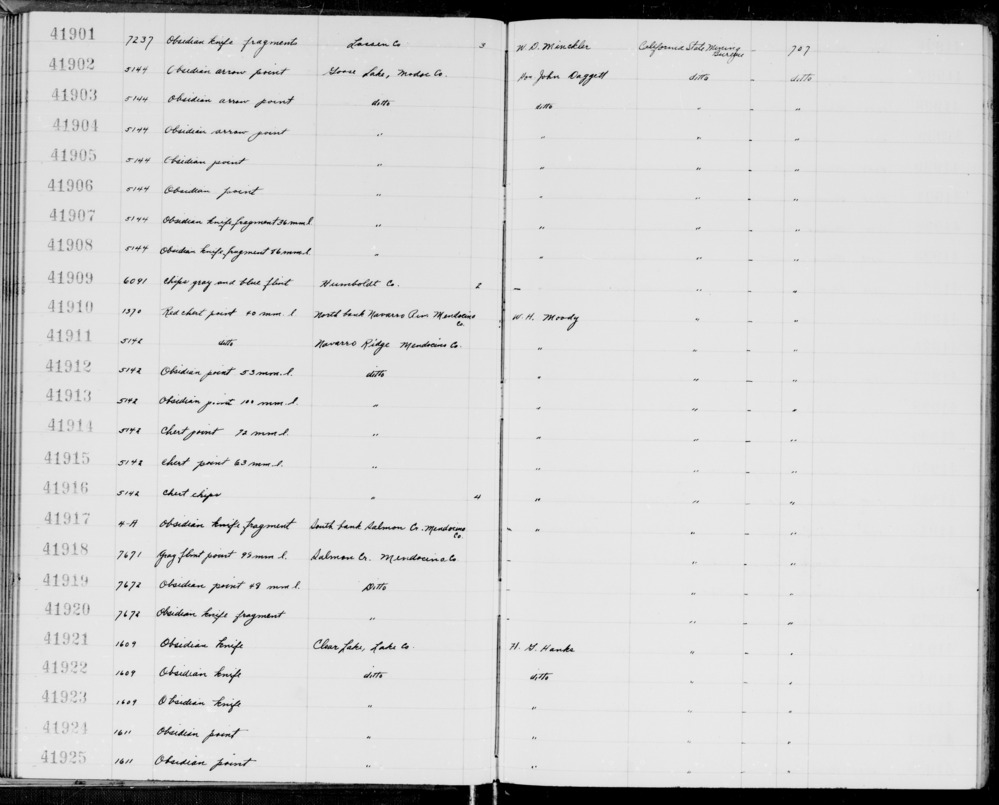 41901 7237 Obsidian knife fragments Lassen Co 3 W. D. Minckler California State Mining Bureau - 707
41902 5144 Obsidian arrow point Goose Lake, Modoc Co. John Daggett ditto - ditto
41903 5144 Obsidian arrow point ditto ditto " - "
41904 5144 Obsidian arrow point " " " - "
41905 5144 Obsidian point " " " - "
41906 5144 Obsidian point " " " - "
41907 5144 Obsidian knife fragment 36 mm l. " " " - "
41908 5144 Obsidian knife fragment 56 mm l. " " " - "
41909 6091 Chips gray and blue flint Humboldt Co. 2 - " - "
41910 1370 Red chert point 40 mm. l North bank Navarro River Mendocino Co. W. H. Moody " - "
41911 5142 ditto Navarro Ridge Mendocino Co. " " - "
41912 5142 Obsidian point 53 mm. l. ditto " " - "
41913 5142 Obsidian point 100 mm. l. " " " - "
41914 5142 Chert point 72 mm l. " " " - "
41915 5142 Chert point 63 mm. l. " " " - "
41916 5142 Chert chips " 4 " " - "
41917 4-A Obsidian knife fragment South bank Salmon Cr. Mendocino Co. - " " - "
41918 7671 Gray flint point 98 mm l. Salmon Cr. Mendocino Co - " - "
41919 7672 Obsidian point 48 mm l. Ditto - " - "
41920 7672 Obsidian knife fragment " - " - "
41921 1609 Obsidian knife Clear Lake, Lake Co. H. G. Hanks " - "
41922 1609 Obsidian knife ditto ditto " - "
41923 1609 Obsidian knife " " " - "
41924 1611 Obsidian point " " " - "
41925 1611 Obsidian point " " " - "